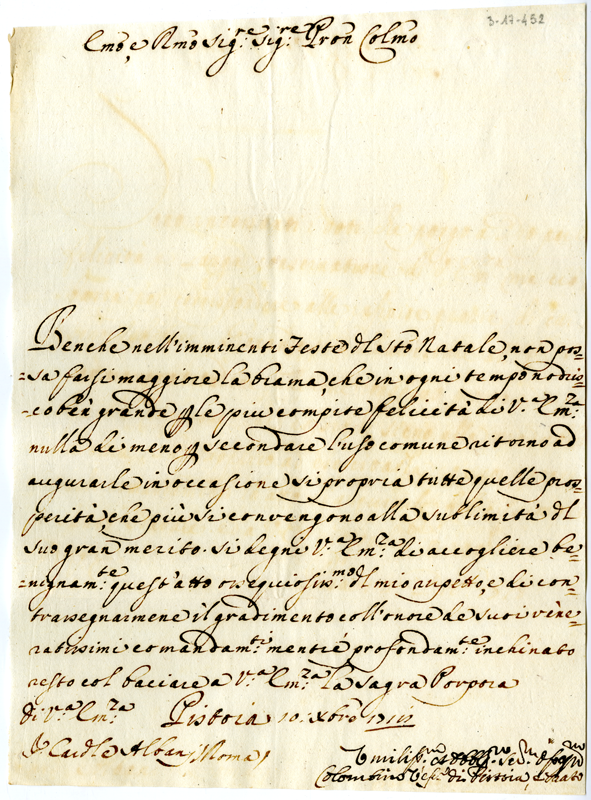 3-17-452
Emo e Rmo Sigre Sigre Pron Colmo
Benche nell'imminenti Feste dl Sto Natale, non pos=
=sa farsi maggiore la brama, che in ogni tempo nodris=
=co ben grande p le più compite felicità di V.a Em.za
nulla di meno p secondare l'uso comune ritorno ad
augurarle in occasione si propria tutte quelle pros=
perità, che più si convengono alla sublimità dl
suo gran merito. Si degni V.a Em.za di accogliere be=
=nignam.te quest'atto ossequiosiss.mo dl mio rispetto, e di con=
trassegnarmene il gradimento coll'onore de suoi vene=
ratissimi comandam.ti mentre profondam.te inchinato
resto col baciare a V.a Em.za la Sagra Porpora
di V.a Em.za Pistoia 10. Xbre
Sr Cardle Albani (Roma)
Umiliss.mo
Colombino Vesc.o di Pistoia, e Prato